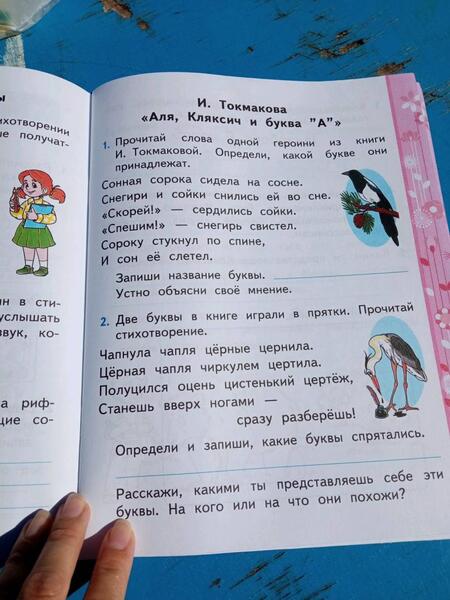 ы
хотворении
ые получат-
ин в сти-
услышать
звук, ко-
а риф-
щие со-
И. Токмакова
«Аля, Кляксич и буква "А"»
1. Прочитай слова одной героини из книги
И. Токмаковой. Определи, какой букве они
принадлежат.
Сонная сорока сидела на сосне.
Снегири и сойки снились ей во сне.
«Скорей!» — сердились сойки.
«Спешим!» — снегирь свистел.
Сороку стукнул по спине,
И сон её слетел.
Запиши название буквы.
Устно объясни своё мнение.
2. Две буквы в книге играли в прятки. Прочитай
стихотворение.
Чапнула чапля цёрные цернила.
Цёрная чапля чиркулем цертила.
Получился оцень цистенький цертёж,
Станешь вверх ногами —
сразу разберёшь!
Определи и запиши, какие буквы спрятались.
Расскажи, какими ты представляешь себе эти
буквы. На кого или на что они похожи?